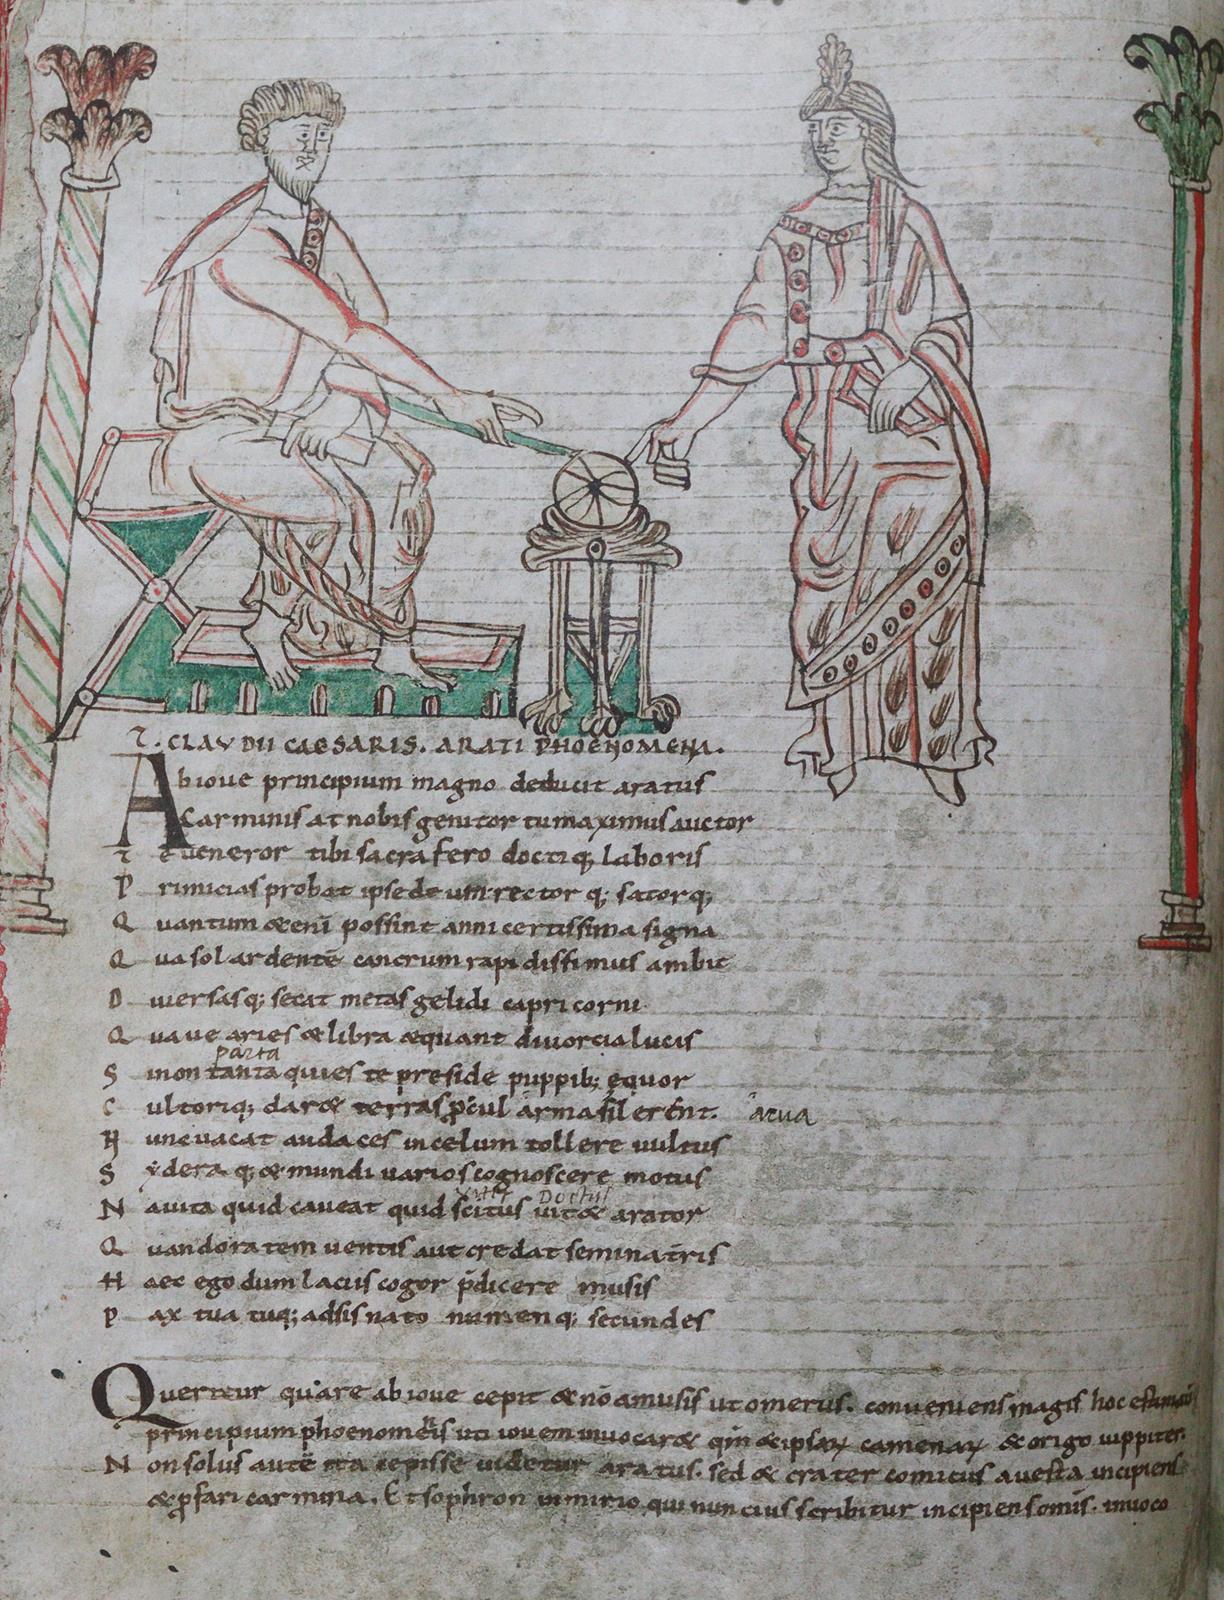 T. CLAVDII CAESARIS. ARATI PHOENOMENA.
Abioue principium magno deducit aratus
Carminis at nobis genitor tu maximus auctor
Te ueneror tibi sacra fero doctiq; laboris
Primicias probat ipse deum rector q; satorq;
Quantum &enī possint anni certissima signa
Qua sol ardentē cancrum rapidissimus ambit
Diuersasq; secat metas gelidi capricorni
Quaue aries & libra æquant diuorcia lucis
parta
Si non tanta quies te preside puppib; ęquor
Cultoriq; dar& terras p̄cul arma silerent. arua
Nunc uacat audaces in celum tollere uultus
Sydera q; & mundi uarios cognoscere motus
Doctus
Nauita quid caueat quid scitus uit& arator
Quando ratem uentis aut credat semina t̄ris
Haec ego dum lacus cogor p̄dicere musis
Pax tua tuq; adsis nato numenq; secundes
Queritur quare ab ioue cepit & nō amusis ut omerus. conueniens magis hoc
principium phoenomenis uti iouem inuocar& qm̄ & ipsaꝝ camenaꝝ & origo iuppiter.
Non solus autē ita cepisse uidetur aratus. sed & crater comicus auesta incipiens
& p̄fari carmina. Et sophron inmirio qui nuncius scribitur incipiens omīs. inuoco